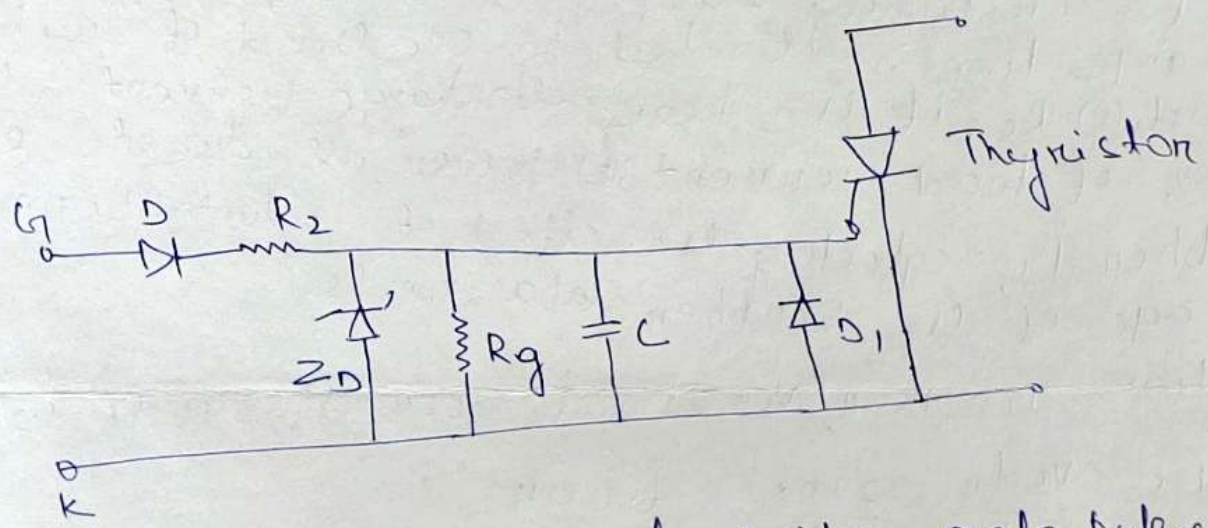 Thyristor
G D R2
ZD Rg C D1
K